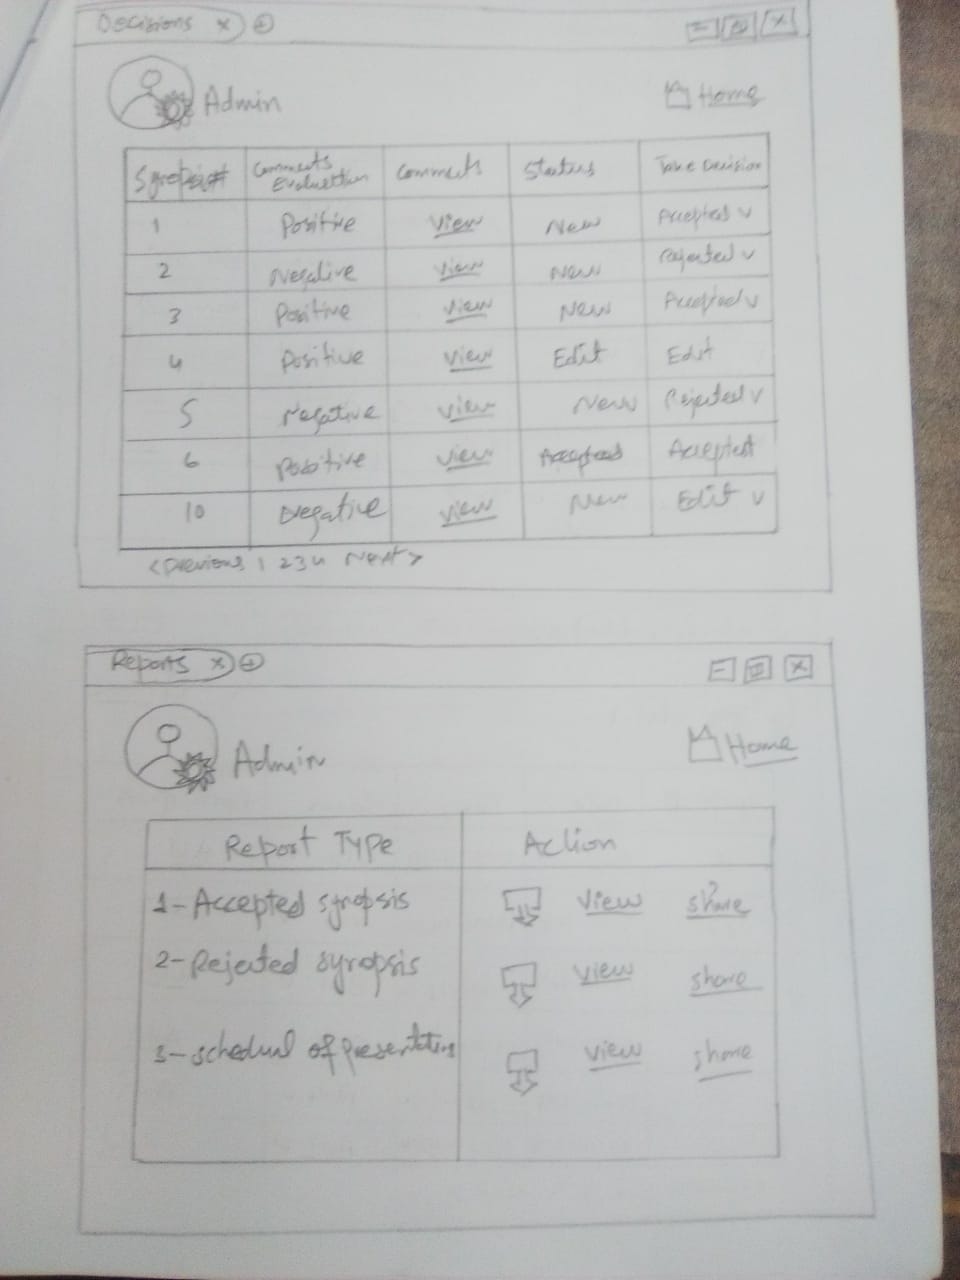 Decisions x +
Admin Home
Synopsis# Comments Evaluation Comments Status Take Decision
1 Positive View New Accepted v
2 Negative View New Rejected v
3 Positive View New Accepted v
4 Positive View Edit Edit
5 Negative View New Rejected v
6 Positive View Accepted Accepted
10 Negative View New Edit v
< Previous 1 2 3 4 Next >
Reports x +
Admin Home
Report Type Action
1- Accepted synopsis view share
2- Rejected synopsis view share
3- schedual of presentations view share